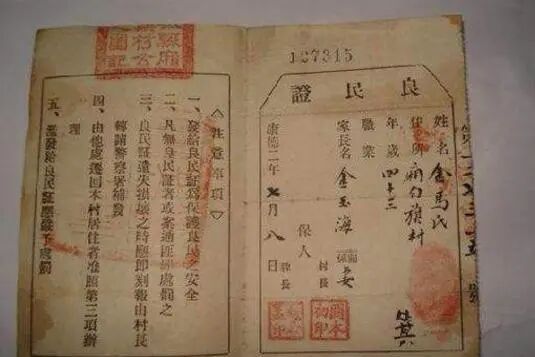 127315
良民證
姓名 金馬氏
住所 廂白旗村
年歲 四十三
職業
家長名 金玉海 關係 妻
保人 村長 牌長
康德二年 月八日
〈注意事項〉
一、發給良民証為保護良民之安全
二、凡無良民証者或案通匪辦處罰之
三、良民証遺失損壞之時應即刻報由村長
轉請警察署補發
四、由他處遷囘本村居住者准照第三項辦
理
五、發給良民証應嚴予處罰